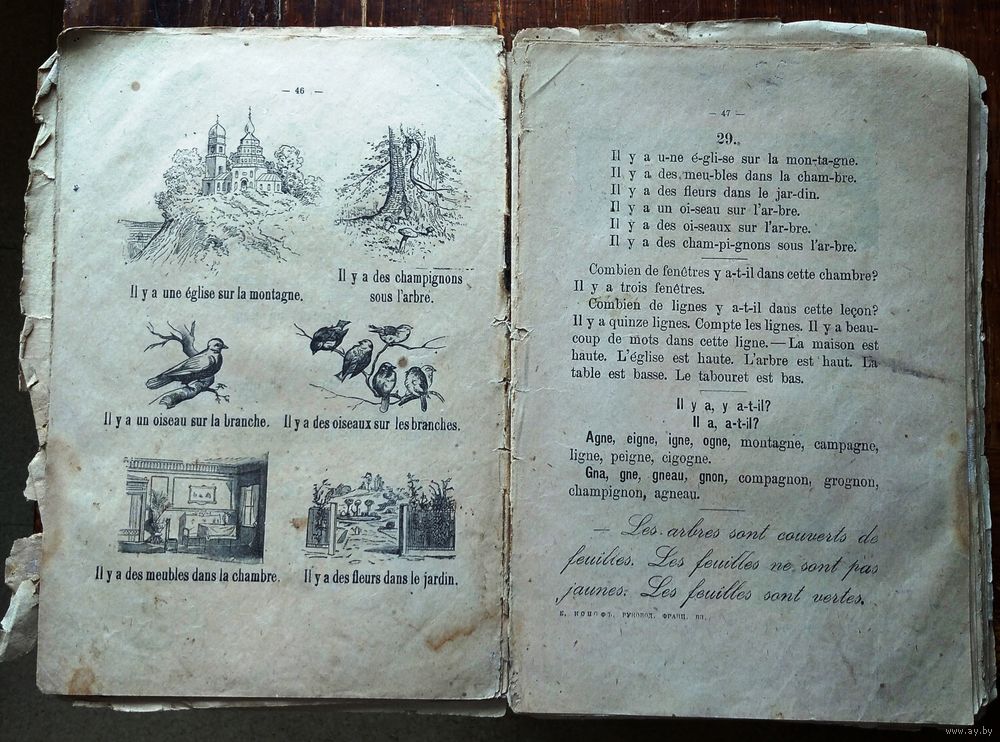 — 46 —
Il y a une église sur la montagne.
Il y a des champignons
sous l'arbre.
Il y a un oiseau sur la branche.
Il y a des oiseaux sur les branches.
Il y a des meubles dans la chambre.
Il y a des fleurs dans le jardin.
— 47 —
29.
Il y a u-ne é-gli-se sur la mon-ta-gne.
Il y a des meu-bles dans la cham-bre.
Il y a des fleurs dans le jar-din.
Il y a un oi-seau sur l'ar-bre.
Il y a des oi-seaux sur l'ar-bre.
Il y a des cham-pi-gnons sous l'ar-bre.
Combien de fenêtres y a-t-il dans cette chambre?
Il y a trois fenêtres.
Combien de lignes y a-t-il dans cette leçon?
Il y a quinze lignes. Compte les lignes. Il y a beau-
coup de mots dans cette ligne. — La maison est
haute. L'église est haute. L'arbre est haut. La
table est basse. Le tabouret est bas.
Il y a, y a-t-il?
Il a, a-t-il?
Agne, eigne, igne, ogne, montagne, campagne,
ligne, peigne, cigogne.
Gna, gne, gneau, gnon, compagnon, grognon,
champignon, agneau.
— Les arbres sont couverts de
feuilles. Les feuilles ne sont pas
jaunes. Les feuilles sont vertes.
РУКОВОД. ФРАНЦ.
www.ay.by